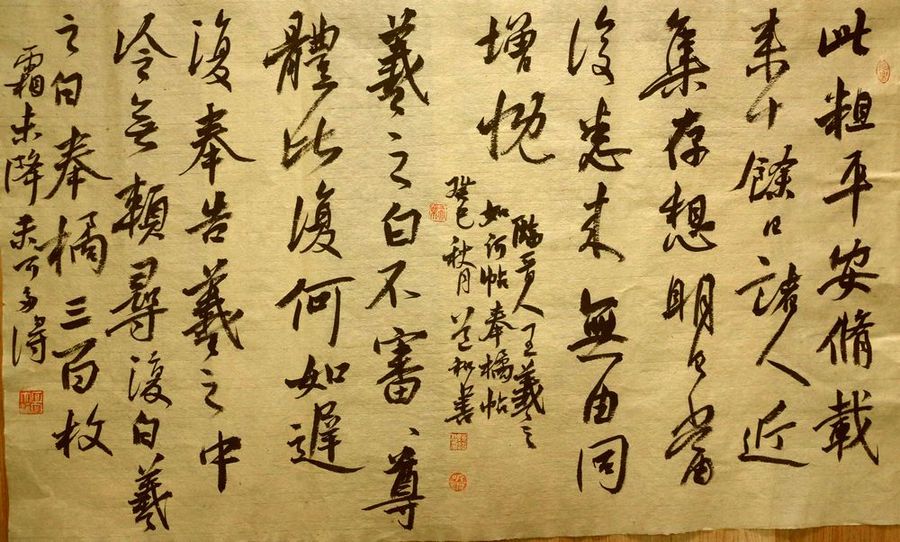 此粗平安脩載
来十餘日諸人近
集存想明日當
復悉来無由同
增慨
臨晉人王羲之
如何帖奉橘帖
癸巳秋月書
羲之白不審、尊
體比復何如遲
復奉告羲之中
冷無賴尋復白羲
之白奉橘三百枚
霜未降未可多得